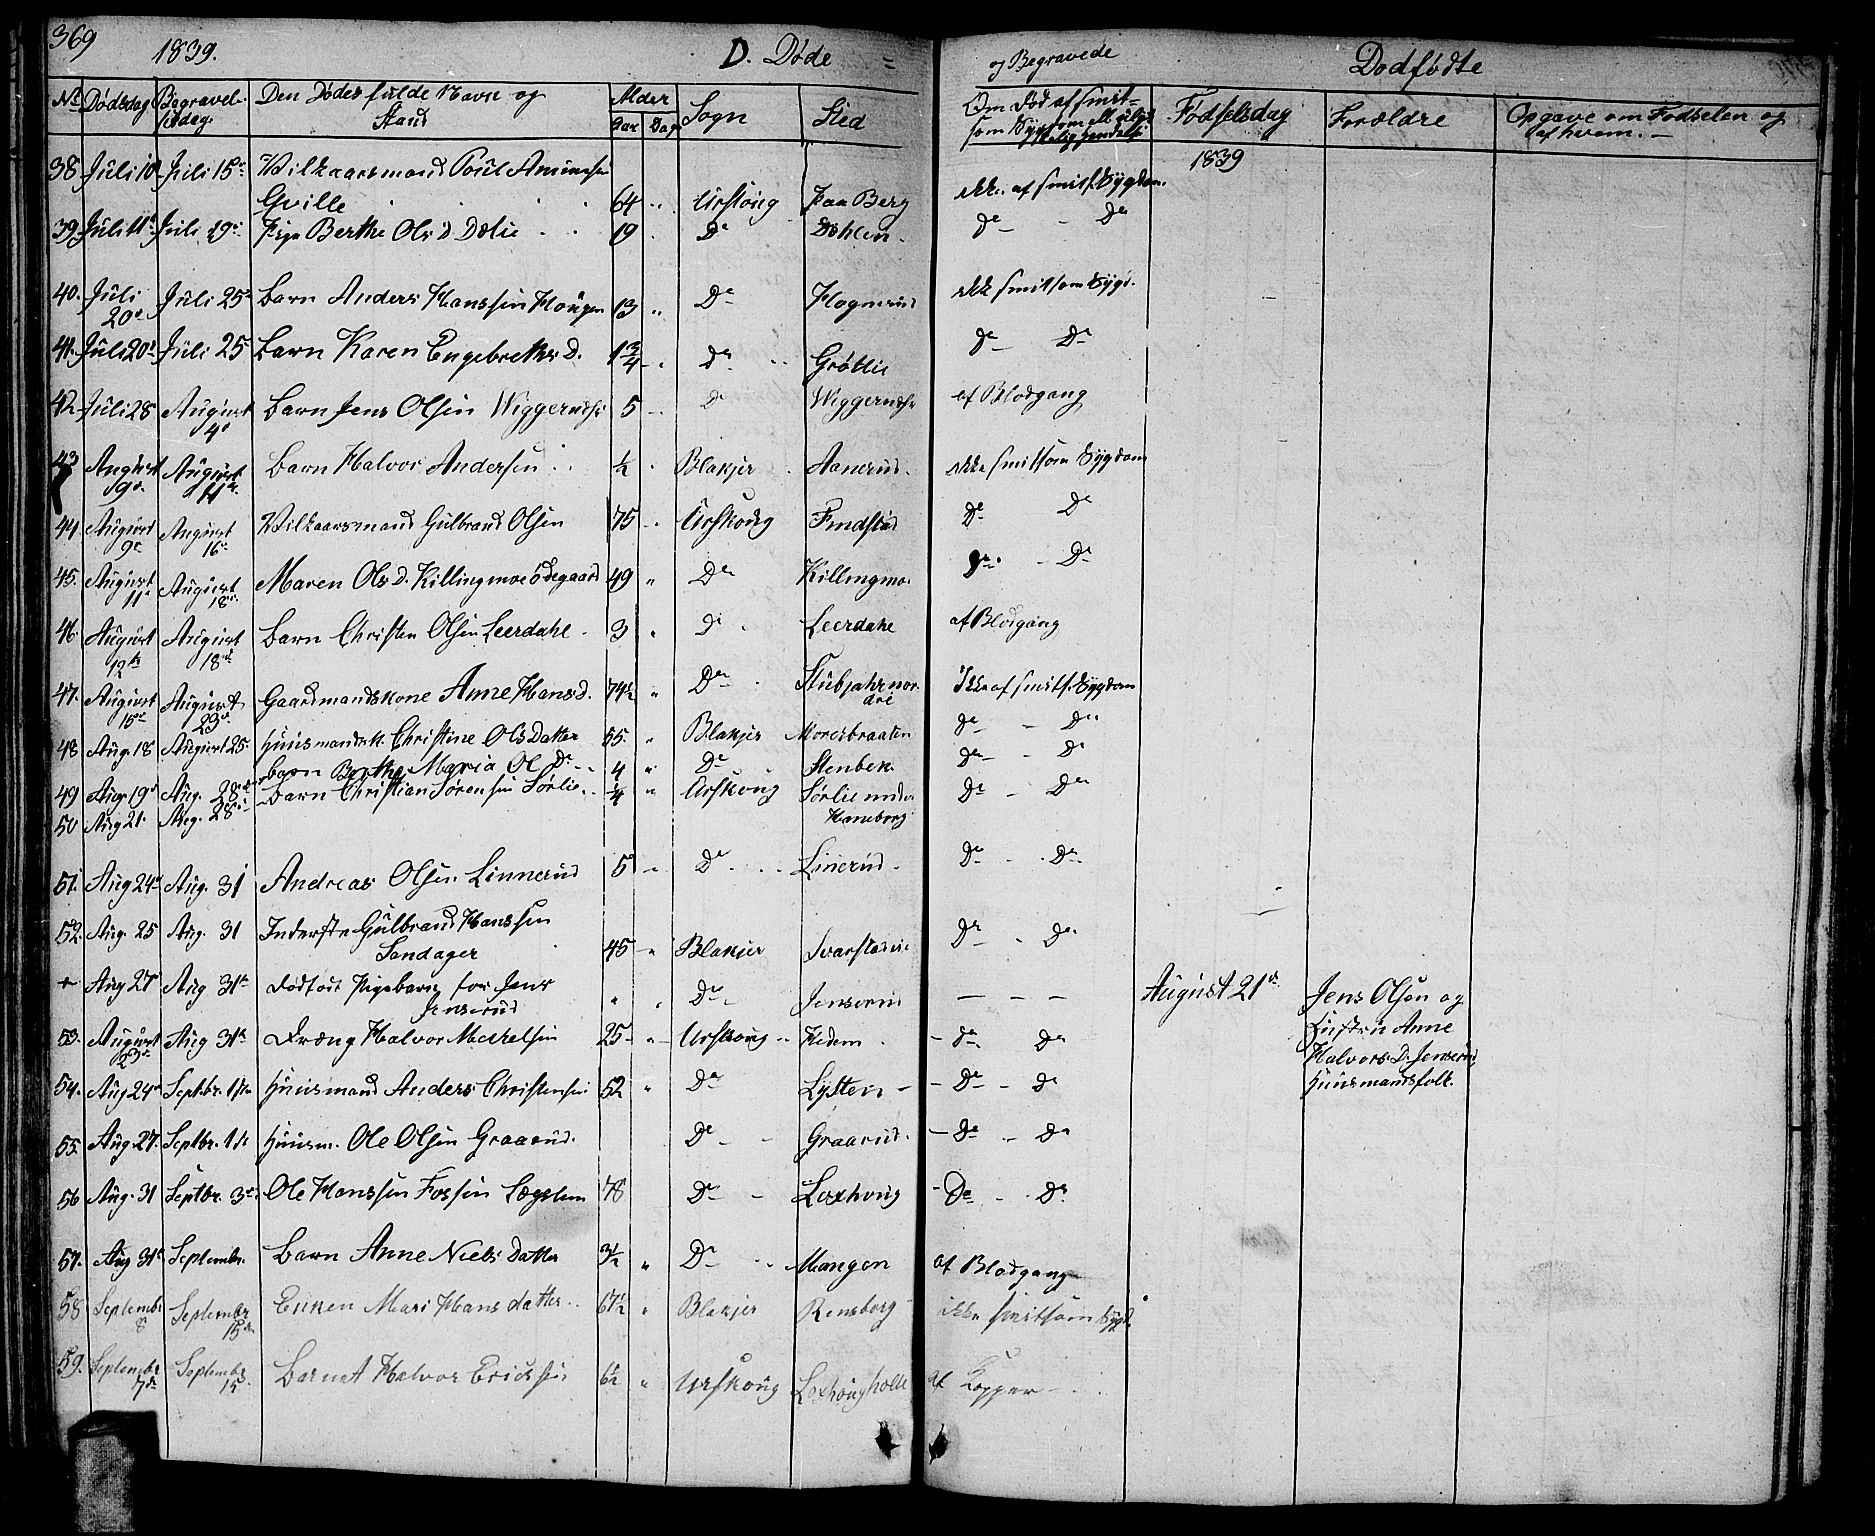 369 1839. D. Døde = og Begravede Dodfødte
No Dødsdag Begravelsesdag Den Dødes fulde Navn og Stand Alder Aar Dag Sogn Sted Om Død af smitsom Sygdom Fødselsdag Forældre Opgave om Fødselen og af hvem.
1839
38. Juli 10 Juli 15de Vilkaarsmand Poul
64 " Urskoug Berg ikke af smits. Sygdom
39. Juli 11te Juli 19de Pige Berthe Ols D Dølie 19 " Do Døhlen Do Do
40. Juli 20de Juli 25de Barn Anders Hanssen Hougen 13 " Do Hognerud ikke smitsom Sygd.
41. Juli 20de Juli 25 Barn Karen Engebreths D. 1 3/4 Do Grøtlie Do Do
42. Juli 28 August 4de Barn Jens Olsen 5 " Do af Blodgang
43 August 9de August 11te Barn Halvor Andersen 1/2 " Blakjer Aanerud ikke smitsom Sygdom
44 August 9de August 16de Vilkaarsmand Gulbrand Olsen 75 " Urskoug Findstad Do Do
45. August 11te August 18de Maren Ols D. Killingmoe Ødegaard 49 " Do Killingmo Do Do
46. August 12te August 18de Barn Christen Olsen Leerdahl 3 " Do Leerdahl af Blodgang
47. August 15de August 23de Gaardmandskone Anne Hans d. 74 1/2 " Do Stubjahr nordre Ikke af smits. Sygdom
48 Aug. 18 August 25. Huusmandsk. Christine Ols Datter 55. " Blakjer Moresbraaten Do Do
49 Aug. 19de Aug. 28de Barn Berthe Maria Ol D. 4 " Do Stenbek Do Do
50 Aug 21. Aug. 28de Barn Christian Sørensen Sørlie 1/4 " Urskoug Sørlie under Haneborg Do Do
51. Aug 24de Aug. 31 Andreas Olsen Linnerud 5 " Do Linerud Do Do
52. Aug. 25 Aug. 31 Inderste Gulbrand Hanssen
Sandager 45 " Blakjer Svarstad Do Do
+ Aug 21 Aug 31te Dødfødt Pigebarn for Jens
Jenserud " " Do Jenserud — — — August 21de Jens Olsen og
Hustru Anne
Halvors D. Jenserud
Huusmandsfolk.
53. August 23de Aug 31te Dreng Halvor Mickelsen 25 " Urskoug Do Do
54. Aug 24de Septbr. 1ste Huusmand Anders Christensen 52 " Do Lysten Do Do
55. Aug. 27. Septbr. 1ste Huusm. Ole Olsen Graarud. Do Graarud. Do Do
56 Aug. 31 Septbr. 3de Ole Hanssen Fossen Lægslem 78 Do Loxhoug Do Do
57. Aug 31te Septembr. Barn Anne Niels Datter 3 1/2 " Do Mangen af Blodgang
58 Septembr 8 Septembr 15de Enken Mari Hans datter 67 1/2 " Blakjer Rensborg ikke smitsom Sygd.
59. Septembr 7de Septembr 15 Barnet Halvor Ericksen 6 1/2 " Urskoug af Kopper